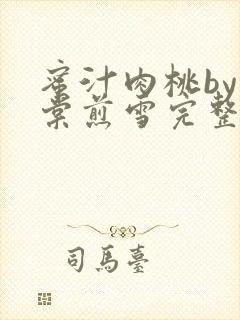 蜜汁肉桃by
棠煎雪完整
司馬臺